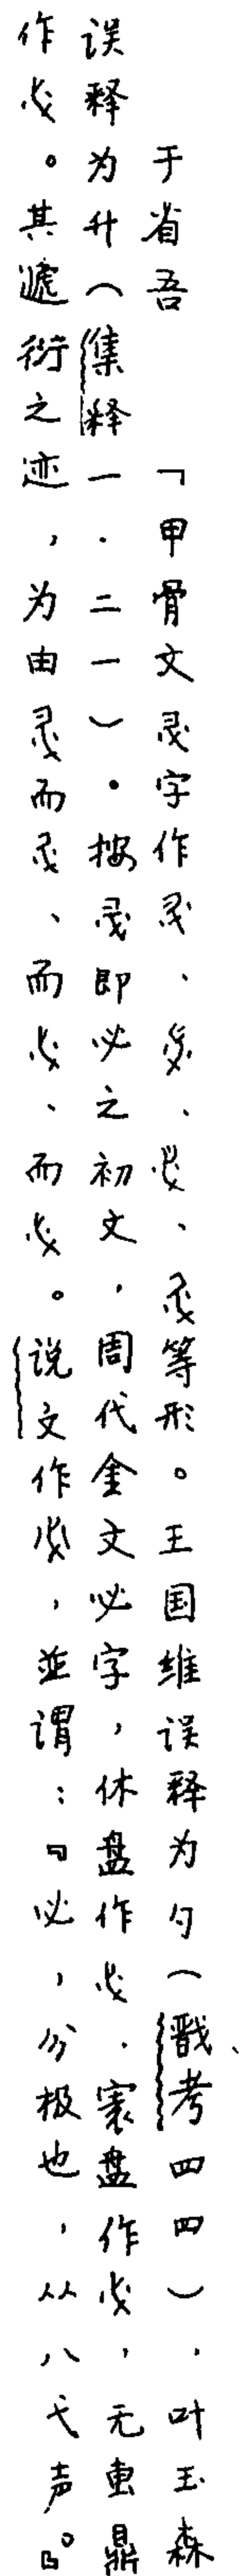 于省吾 「甲骨文字作、、、等形。王国维误释为勺（戬考四四），叶玉森
误释为升（集释一·二一）。按即必之初文，周代金文必字，休盘作，寰盘作，无叀鼎
作。其递衍之迹，为由而、而、而。说文作，並谓：『必，分极也，从八弋声。』